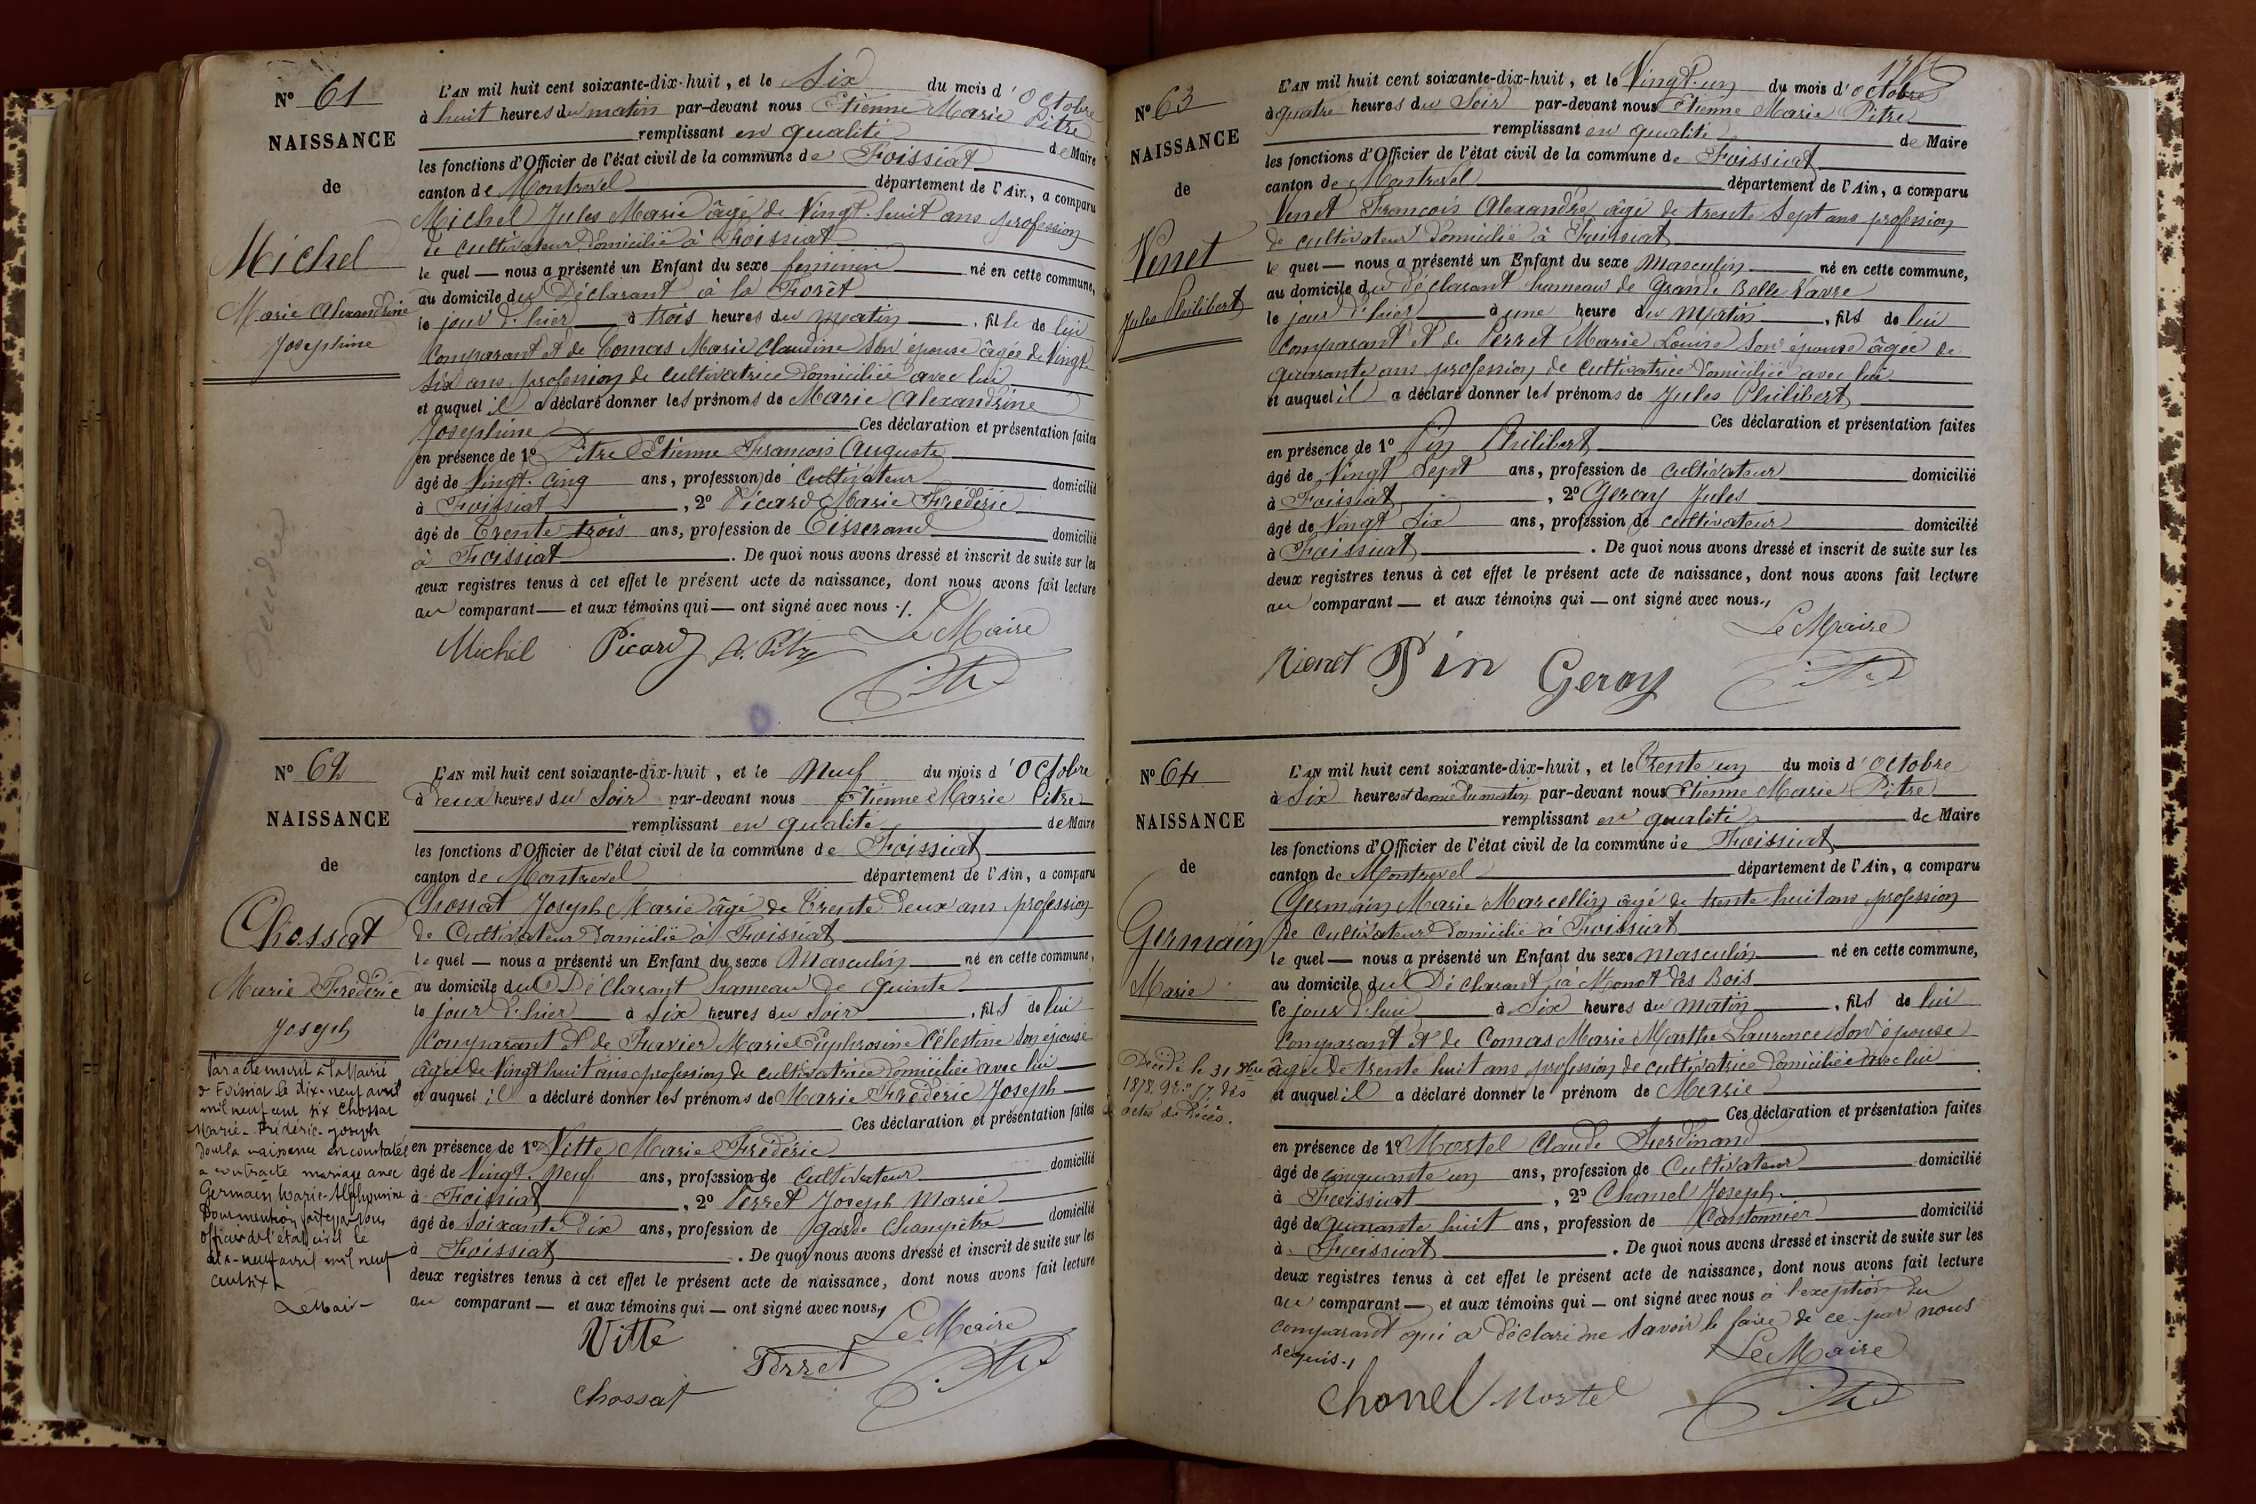 N° 61
NAISSANCE
de
Michel
Marie Alexandrine
Josephine
L'AN mil huit cent soixante-dix-huit, et le Six du mois d'Octobre
à huit heures du matin par-devant nous Etienne Marie Pitre
remplissant en qualité de Maire
les fonctions d'Officier de l'état civil de la commune de Foissiat
canton de Montrevel département de l'Ain, a comparu
Michel Jules Marie âgé de Vingt-huit ans profession
de cultivateur domicilié à Foissiat
le quel — nous a présenté un Enfant du sexe feminin né en cette commune,
au domicile du Déclarant à la Forêt
le jour d'hier à trois heures du matin, fille de lui
Comparant et de Comas Marie Claudine Son épouse âgée de Vingt
Six ans profession de cultivatrice domiciliée avec lui
et auquel il a déclaré donner les prénoms de Marie Alexandrine
Josephine Ces déclaration et présentation faites
en présence de 1° Pitre Etienne François Auguste
âgé de Vingt-cinq ans, profession de Cultivateur domicilié
à Foissiat, 2° Picard Marie Frédéric
âgé de Trente trois ans, profession de Tisserand domicilié
à Foissiat. De quoi nous avons dressé et inscrit de suite sur les
deux registres tenus à cet effet le présent acte de naissance, dont nous avons fait lecture
au comparant — et aux témoins qui — ont signé avec nous ./.
Le Maire
Michel Picard A. Pitre
Pitre
N° 62
NAISSANCE
de
Chossat
Marie Frédéric
Joseph
Par acte inscrit à la Mairie
de Foissiat le dix-neuf avril
mil neuf cent six Chossat
Marie-Frédéric-Joseph
dont la naissance est constatée
a contracté mariage avec
Germain Marie-Alphonsine
Dont mention faite par nous
Officier de l'état civil le
dix-neuf avril mil neuf
cent six
Le Maire
L'AN mil huit cent soixante-dix-huit, et le Neuf du mois d'Octobre
à deux heures du Soir par-devant nous Etienne Marie Pitre
remplissant en qualité de Maire
les fonctions d'Officier de l'état civil de la commune de Foissiat
canton de Montrevel département de l'Ain, a comparu
Chossat Joseph Marie âgé de Trente deux ans profession
de Cultivateur domicilié à Foissiat
le quel — nous a présenté un Enfant du sexe Masculin né en cette commune,
au domicile du Déclarant hameau de Quinte
le jour d'hier à Six heures du Soir, fils de lui
Comparant et de Favier Marie Euphrosine Célestine Son épouse
âgée de Vingt huit ans profession de cultivatrice domiciliée avec lui
et auquel il a déclaré donner les prénoms de Marie Frédéric Joseph
Ces déclaration et présentation faites
en présence de 1° Vitte Marie Frédéric
âgé de Vingt-neuf ans, profession de Cultivateur domicilié
à Foissiat, 2° Perret Joseph Marie
âgé de Soixante dix ans, profession de Garde Champêtre domicilié
à Foissiat. De quoi nous avons dressé et inscrit de suite sur les
deux registres tenus à cet effet le présent acte de naissance, dont nous avons fait lecture
au comparant — et aux témoins qui — ont signé avec nous ./
Le Maire
Vitte
Perret Pitre
Chossat
N° 63
NAISSANCE
de
Venet
Jules Philibert
L'AN mil huit cent soixante-dix-huit, et le Vingt-un du mois d'octobre
à quatre heures du Soir par-devant nous Etienne Marie Pitre
remplissant en qualité de Maire
les fonctions d'Officier de l'état civil de la commune de Foissiat
canton de Montrevel département de l'Ain, a comparu
Venet François Alexandre âgé de trente Sept ans profession
de cultivateur domicilié à Foissiat
le quel — nous a présenté un Enfant du sexe Masculin né en cette commune,
au domicile du déclarant hameau de Grande Belle Vavre
le jour d'hier à une heure du Matin, fils de lui
Comparant et de Perret Marie Louise Son épouse âgée de
quarante ans profession de Cultivatrice domiciliée avec lui
et auquel il a déclaré donner les prénoms de Jules Philibert
Ces déclaration et présentation faites
en présence de 1° Pin Philibert
âgé de Vingt Sept ans, profession de Cultivateur domicilié
à Foissiat, 2° Geray Jules
âgé de Vingt Six ans, profession de cultivateur domicilié
à Foissiat. De quoi nous avons dressé et inscrit de suite sur les
deux registres tenus à cet effet le présent acte de naissance, dont nous avons fait lecture
au comparant — et aux témoins qui — ont signé avec nous ./
Le Maire
Venet Pin Geray
Pitre
N° 64
NAISSANCE
de
Germain
Marie
Décédé le 31 8bre
1878. N° 57 des
actes de Décès.
L'AN mil huit cent soixante-dix-huit, et le Trente un du mois d'octobre
à Six heures et demie du matin par-devant nous Etienne Marie Pitre
remplissant en qualité de Maire
les fonctions d'Officier de l'état civil de la commune de Foissiat
canton de Montrevel département de l'Ain, a comparu
Germain Marie Marcellin âgé de trente huit ans profession
de cultivateur domicilié à Foissiat
le quel — nous a présenté un Enfant du sexe masculin né en cette commune,
au domicile du Déclarant, à Monot des Bois
le jour d'hui à Six heures du matin, fils de lui
Comparant et de Comas Marie Marthe Laurence Son épouse
âgée de trente huit ans profession de cultivatrice domiciliée avec lui
et auquel il a déclaré donner le prénom de Marie
Ces déclaration et présentation faites
en présence de 1° Mortel Claude Ferdinand
âgé de cinquante un ans, profession de Cultivateur domicilié
à Foissiat, 2° Chanel Joseph
âgé de quarante huit ans, profession de Cantonnier domicilié
à Foissiat. De quoi nous avons dressé et inscrit de suite sur les
deux registres tenus à cet effet le présent acte de naissance, dont nous avons fait lecture
au comparant — et aux témoins qui — ont signé avec nous à l'exeption du
comparant qui a déclaré ne Savoir le faire de ce par nous
requis ./
Le Maire
Chanel Mortel
Pitre